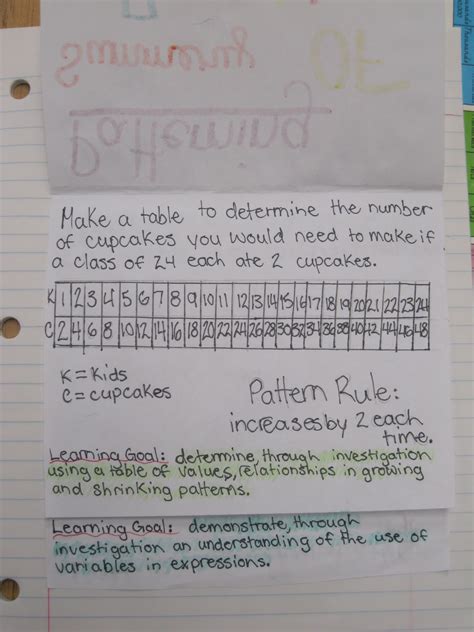 Patterning
Make a table to determine the number
of cupcakes you would need to make if
a class of 24 each ate 2 cupcakes.
K 1 2 3 4 5 6 7 8 9 10 11 12 13 14 15 16 17 18 19 20 21 22 23 24
C 2 4 6 8 10 12 14 16 18 20 22 24 26 28 30 32 34 36 38 40 42 44 46 48
K = Kids
C = cupcakes
Pattern Rule:
increases by 2 each
time.
Learning Goal: determine, through investigation
using a table of values, relationships in growing
and shrinking patterns.
Learning Goal: demonstrate, through
investigation an understanding of the use of
variables in expressions.